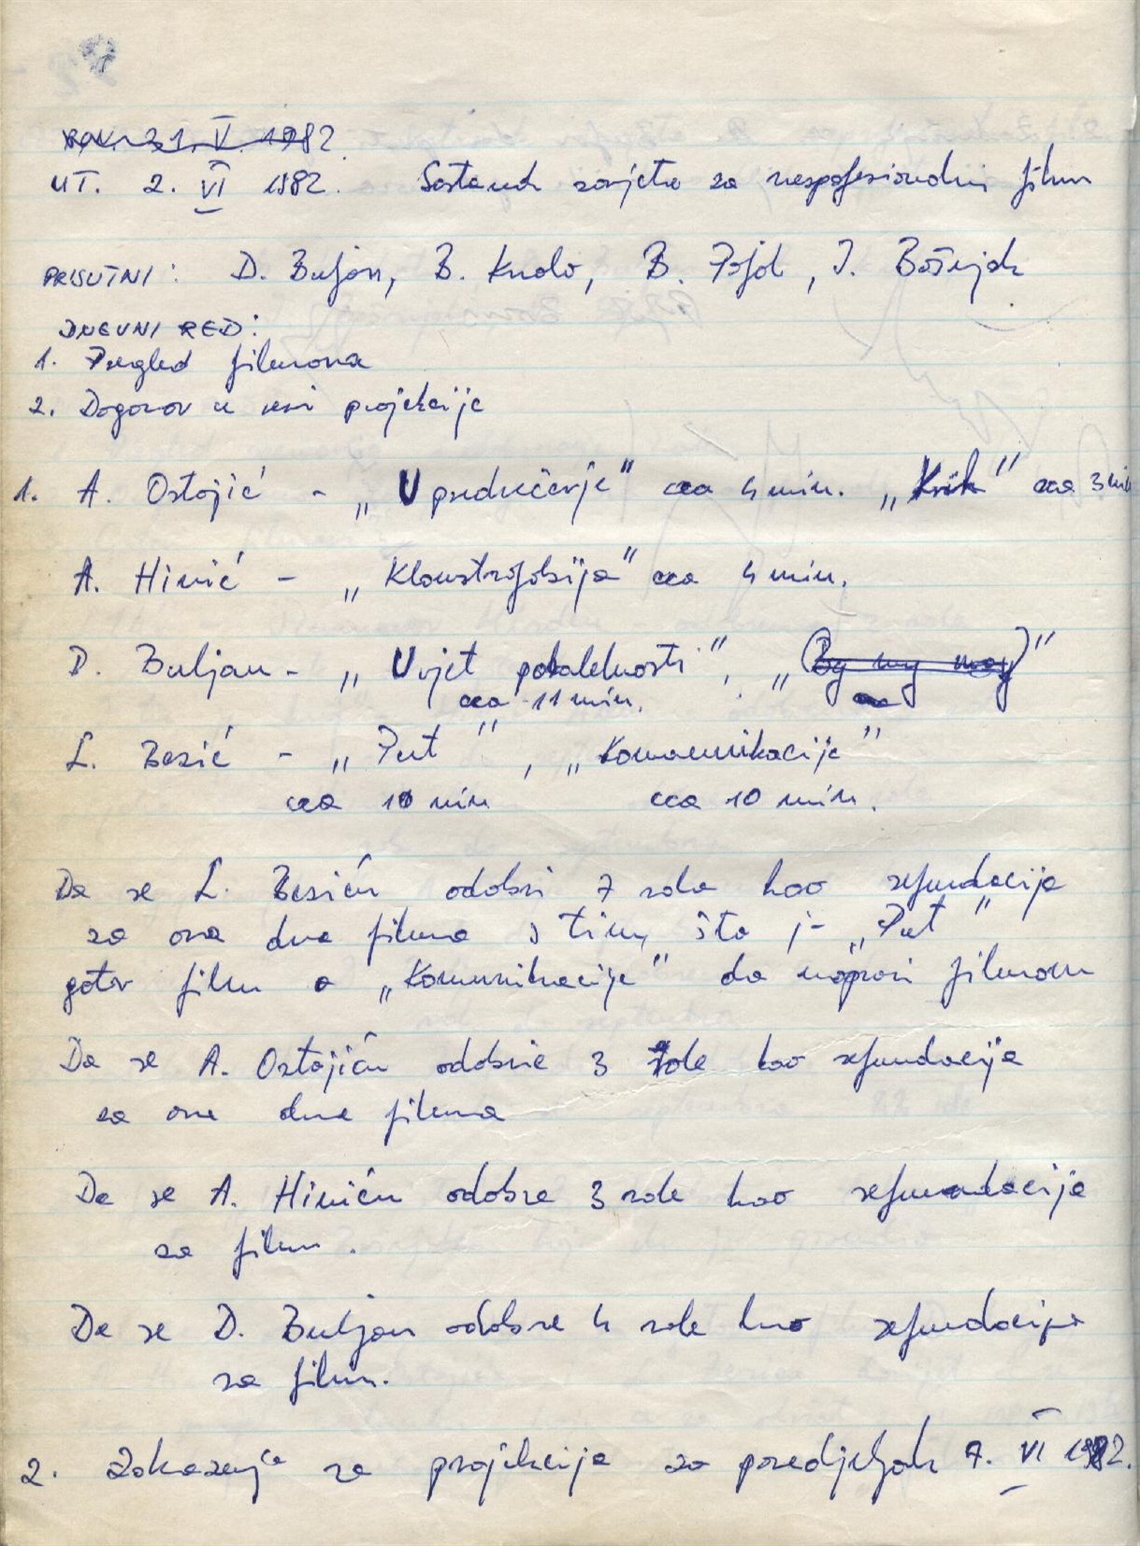 21. V. 1982.
UT. 2. VI 1982. Sastanak savjeta za neprofesionalni film
PRISUTNI: D. Buljan, B. Knolo, B. , I. Bošnjak
DNEVNI RED:
1. Pregled filmova
2. Dogovor u vezi projekcije
1. A. Ostojić - „U predvečerje" cca 4 min. „Krik" cca 3 min
A. Hinić - „Klaustrofobija" cca 4 min.
D. Buljan - „Uvjet podalelnosti", „(By my way)"
cca 11 min.
L. Besić - „Put", „Komunikacije"
cca 10 min cca 10 min.
Da se L. Besiću odobri 7 rola kao refundacija
za ova dva filma s tim što je „Put"
gotov film a „Komunikacije" da napravi filmom
Da se A. Ostojiću odobre 3 role kao refundacija
za ova dva filma
Da se A. Hiniću odobre 3 role kao refundacija
za film.
Da se D. Buljan odobre 4 role kao refundacija
za film.
2. Zakazuje se projekcija za ponedjeljak 7. VI 1982.